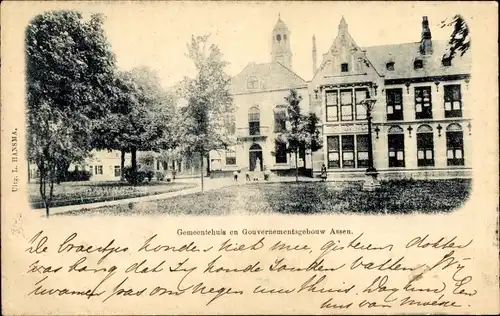 Uitg. L. HANSMA.
Gemeentehuis en Gouvernementsgebouw Assen.
De Craertjes konden niet mee, gisteren dokter
was bang dat Zij koude Zouden vatten. Wij
kwamen pas om negen uur thuis. Dag lieve Lien
een kus van